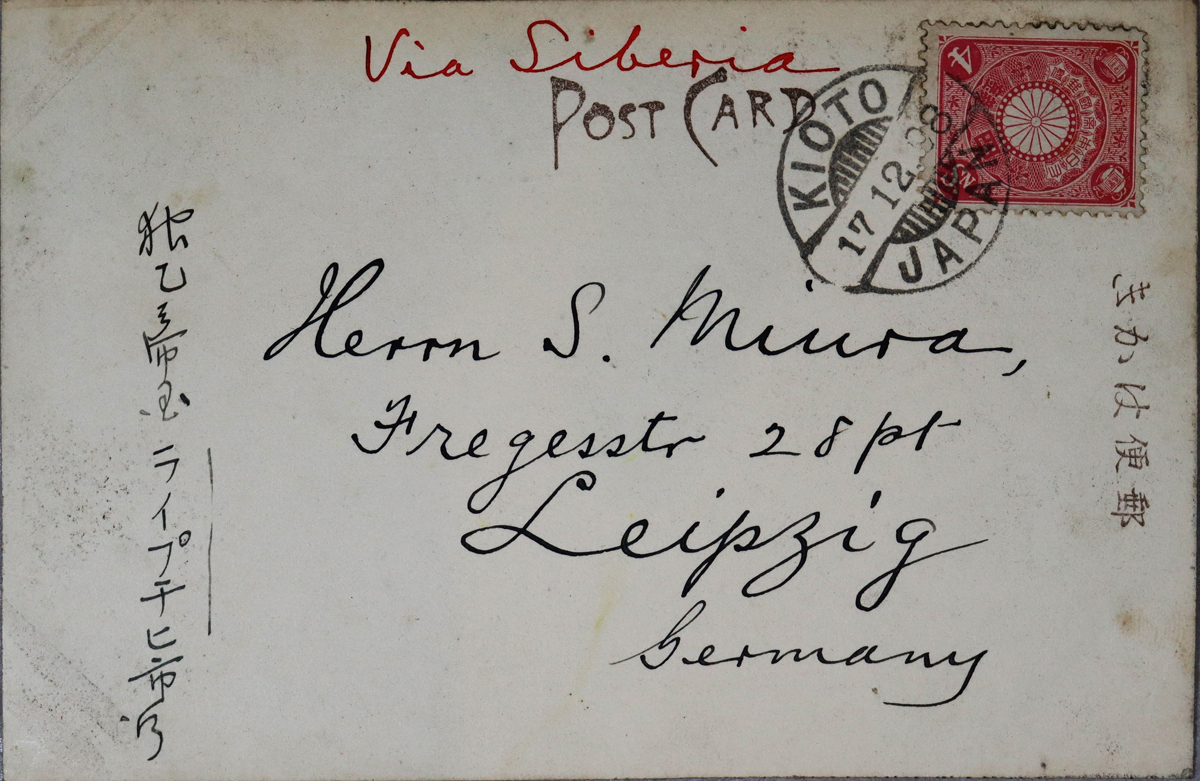 Via Siberia
POST CARD
KIOTO
17.12.08
JAPAN
4
Herrn S. Miura,
Fregesstr 28 pt
Leipzig
Germany
独乙帝国ライプチヒ市行
きかは便郵